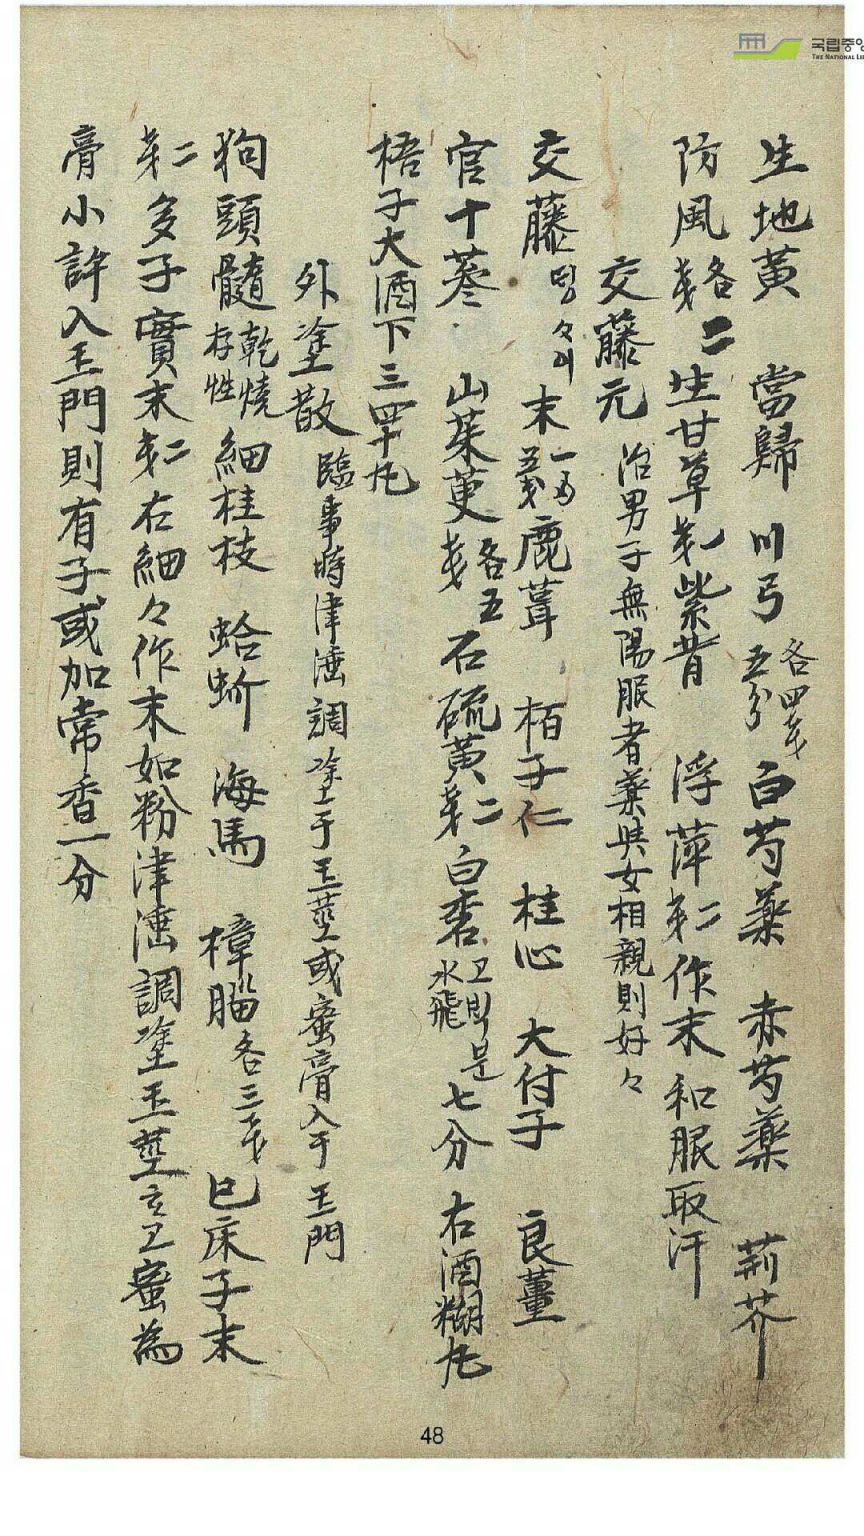 국립중앙
THE NATIONAL LI
生地黃 當歸 川弓 各四戈五分 白芍藥 赤芍藥 荊芥
防風 各二戈 生甘草 紫背 浮萍 戈二 作末和服取汗
交藤元 治男子無陽服者藥與女相親則好々
交藤 末 一两五戈 鹿茸 栢子仁 桂心 大付子 良薑
官十蔘 山茱萸 各五戈 石硫黃 戈二 白 水飛 七分 右酒糊丸
梧子大酒下三四十丸
外塗散 臨事時津唾調塗于玉莖或蜜膏入于玉門
狗頭髓 乾燒存性 細桂枝 蛤蚧 海馬 樟腦 各三戈 巳床子末
戈二 多子實末 戈二 右細々作末如粉津唾調塗玉莖 蜜為
膏小許入玉門則有子或加常香一分
48